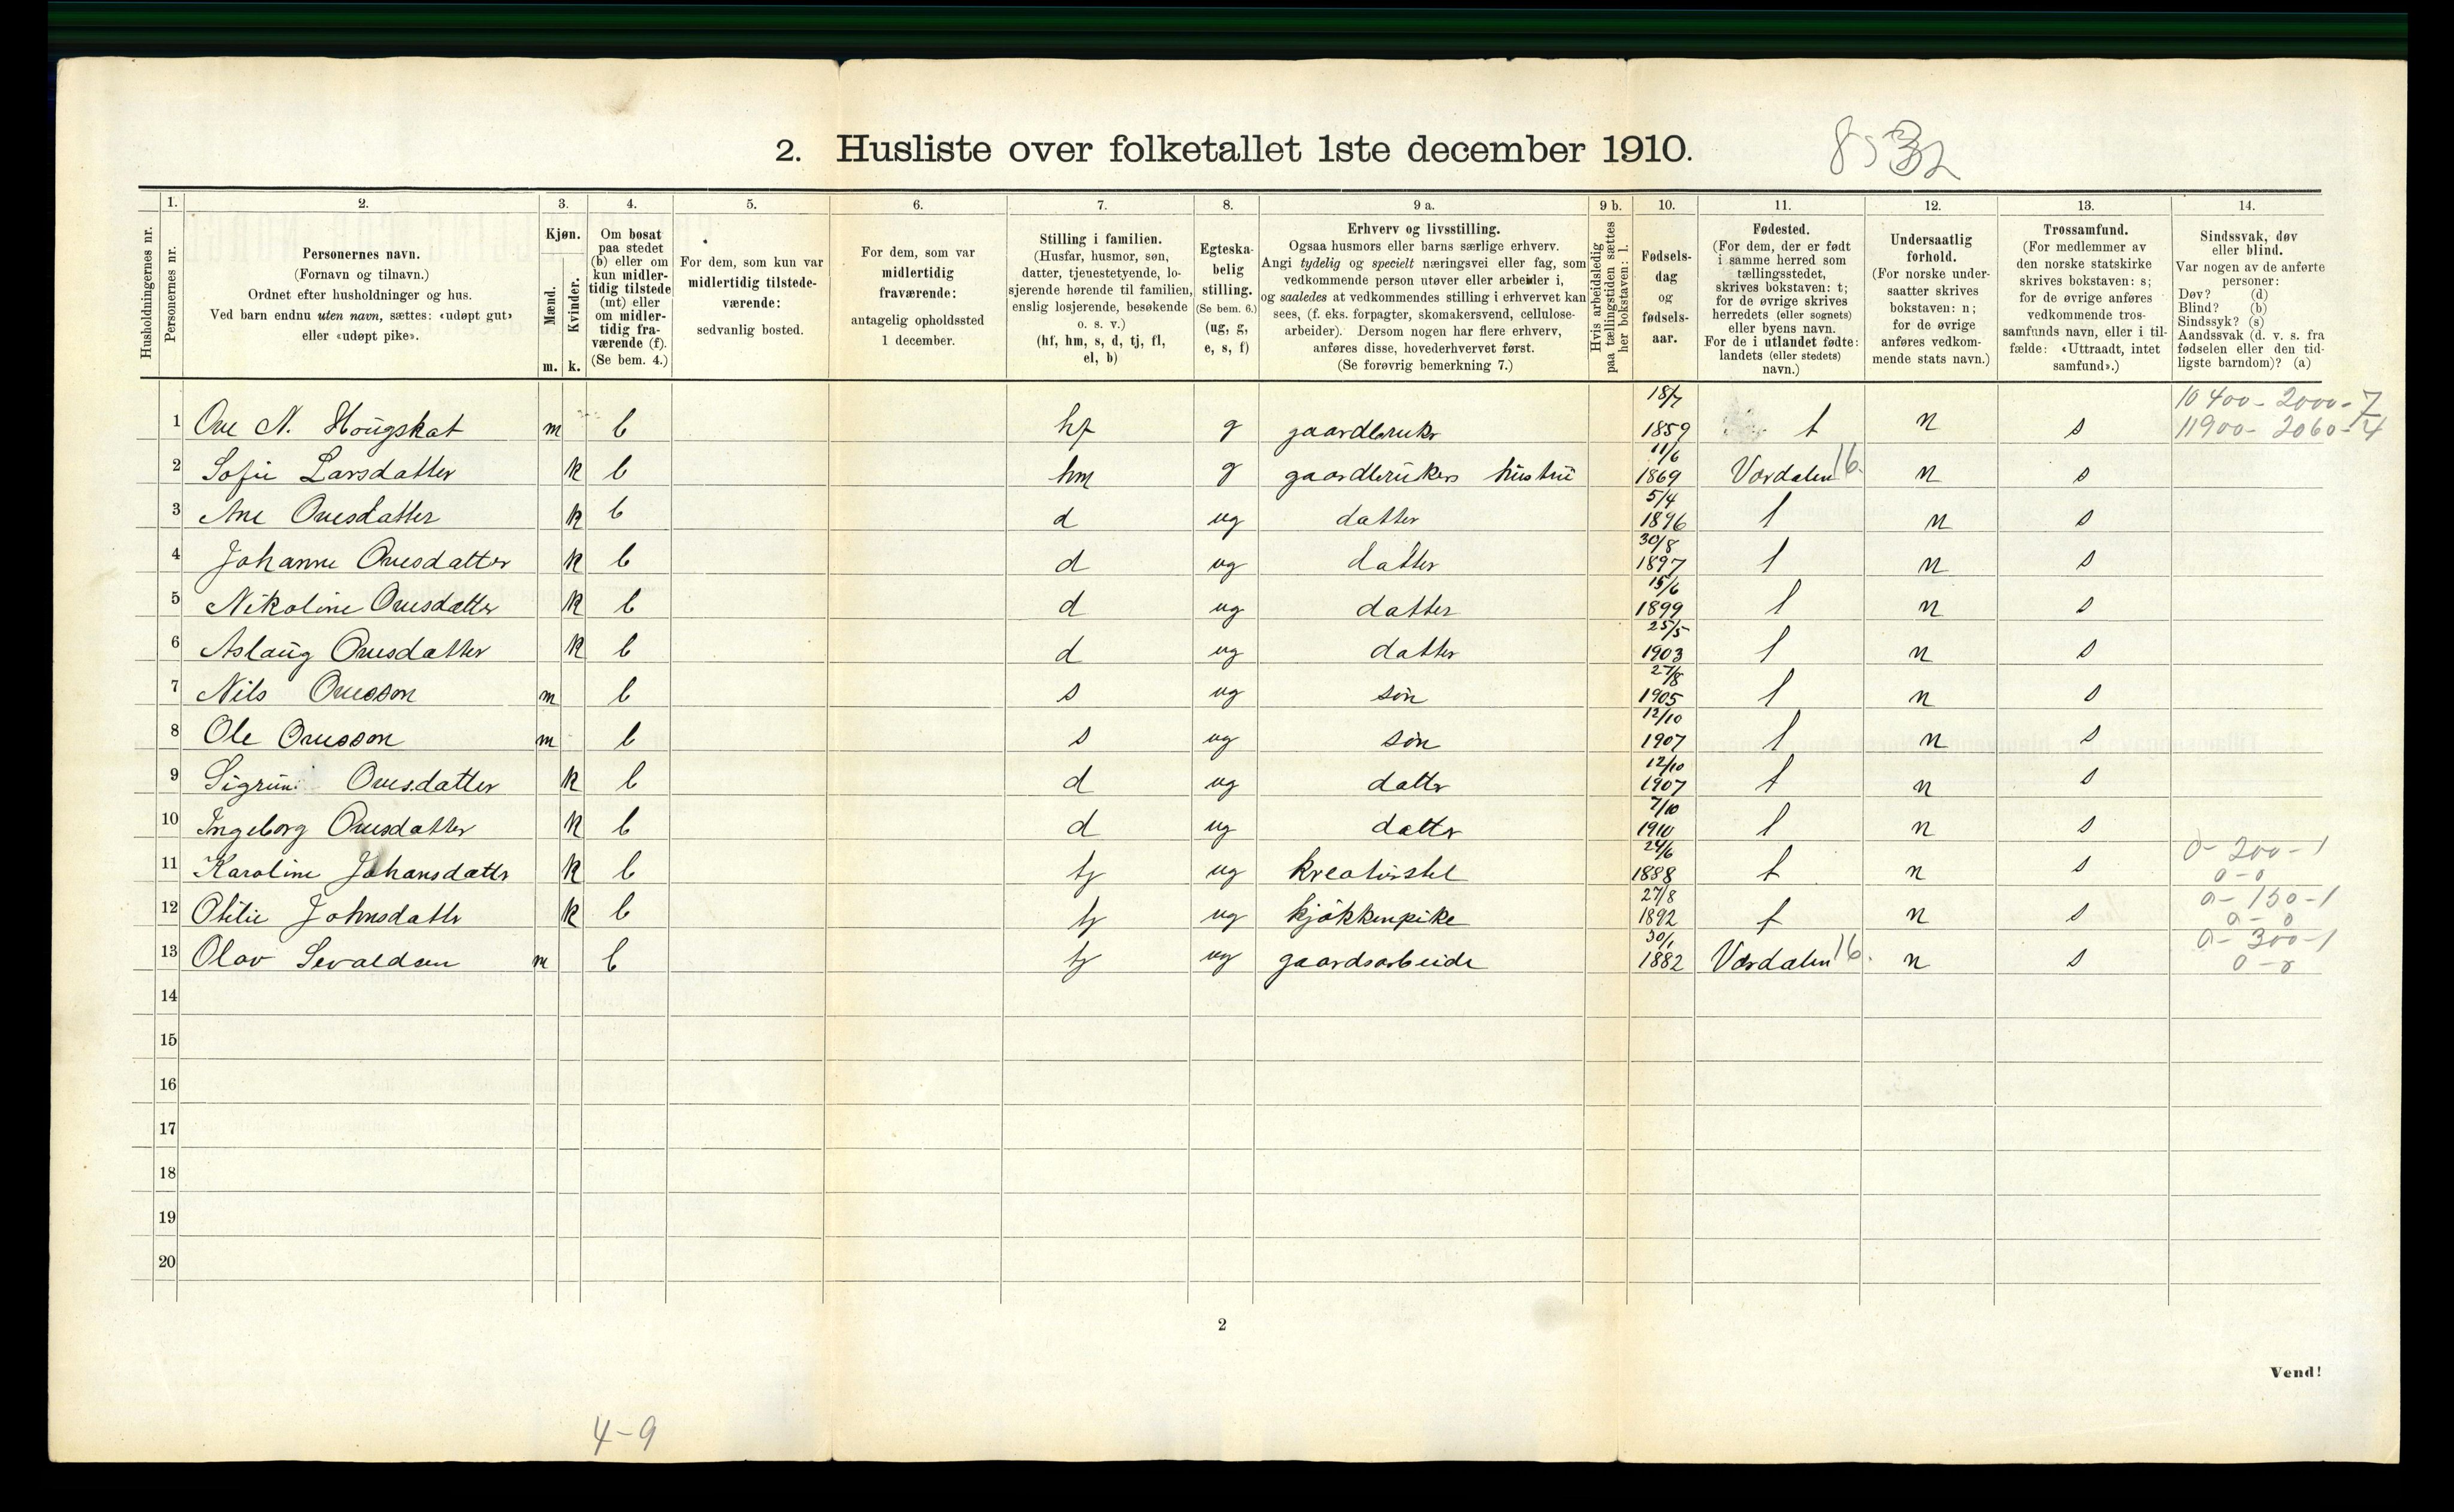 2. Husliste over folketallet 1ste december 1910.
1. 2. 3. 4. 5. 6. 7. 8. 9 a. 9 b. 10. 11. 12. 13. 14.
Husholdningernes nr.
Personernes nr.
Personernes navn.
(Fornavn og tilnavn.)
Ordnet efter husholdninger og hus.
Ved barn endnu uten navn, sættes: «udøpt gut»
eller «udøpt pike».
Kjøn.
Mænd.
Kvinder.
m. k.
Om bosat
paa stedet
(b) eller om
kun midler-
tidig tilstede
(mt) eller
om midler-
tidig fra-
værende (f).
(Se bem. 4.)
For dem, som kun var
midlertidig tilstede-
værende:
sedvanlig bosted.
For dem, som var
midlertidig
fraværende:
antagelig opholdssted
1 december.
Stilling i familien.
(Husfar, husmor, søn,
datter, tjenestetyende, lo-
sjerende hørende til familien,
enslig losjerende, besøkende
o. s. v.)
(hf, hm, s, d, tj, fl,
el, b)
Egteska-
belig
stilling.
(Se bem. 6.)
(ug, g,
e, s, f)
Erhverv og livsstilling.
Ogsaa husmors eller barns særlige erhverv.
Angi tydelig og specielt næringsvei eller fag, som
vedkommende person utøver eller arbeider i,
og saaledes at vedkommendes stilling i erhvervet kan
sees, (f. eks. forpagter, skomakersvend, cellulose-
arbeider). Dersom nogen har flere erhverv,
anføres disse, hovederhvervet først.
(Se forøvrig bemerkning 7.)
Hvis arbeidsledig
paa tællingstiden sættes
her bokstaven: l.
Fødsels-
dag
og
fødsels-
aar.
Fødested.
(For dem, der er født
i samme herred som
tællingsstedet,
skrives bokstaven: t;
for de øvrige skrives
herredets (eller sognets)
eller byens navn.
For de i utlandet fødte:
landets (eller stedets)
navn.)
Undersaatlig
forhold.
(For norske under-
saatter skrives
bokstaven: n;
for de øvrige
anføres vedkom-
mende stats navn.)
Trossamfund.
(For medlemmer av
den norske statskirke
skrives bokstaven: s;
for de øvrige anføres
vedkommende tros-
samfunds navn, eller i til-
fælde: «Uttraadt, intet
samfund».)
Sindssvak, døv
eller blind.
Var nogen av de anførte
personer:
Døv? (d)
Blind? (b)
Sindssyk? (s)
Aandssvak (d. v. s. fra
fødselen eller den tid-
ligste barndom)? (a)
10400 - 2000 - 7
1 Ove N. Hougskat m b hf g gaardbruker 18/7 1859 t n s 11900 - 2060 - 4
2 Sofie Larsdatter k b hm g gaardbrukers hustru 11/6 1869 Værdalen 16. n s
3 Ane Ovesdatter k b d ug datter 5/4 1896 t n s
4 Johanne Ovesdatter k b d ug datter 30/8 1897 t n s
5 Nikoline Ovesdatter k b d ug datter 15/6 1899 t n s
6 Aslaug Ovesdatter k b d ug datter 25/5 1903 t n s
7 Nils Ovesson m b s ug søn 27/8 1905 t n s
8 Ole Ovesson m b s ug søn 12/10 1907 t n s
9 Sigrun Ovesdatter k b d ug datter 12/10 1907 t n s
10 Ingeborg Ovesdatter k b d ug datter 7/10 1910 t n s
11 Karoline Johansdatter k b tj ug kreaturstel 24/6 1888 t n s 0 - 200 - 1 0 - 0
12 Otilie Johnsdatter k b tj ug kjøkkenpike 27/8 1892 t n s 0 - 150 - 1 0 - 0
13 Olav Sevaldsen m b tj ug gaardsarbeide 30/1 1882 Værdalen 16. n s 0 - 300 - 1 0 - 0
14
15
16
17
18
19
20
2
Vend!
4-9